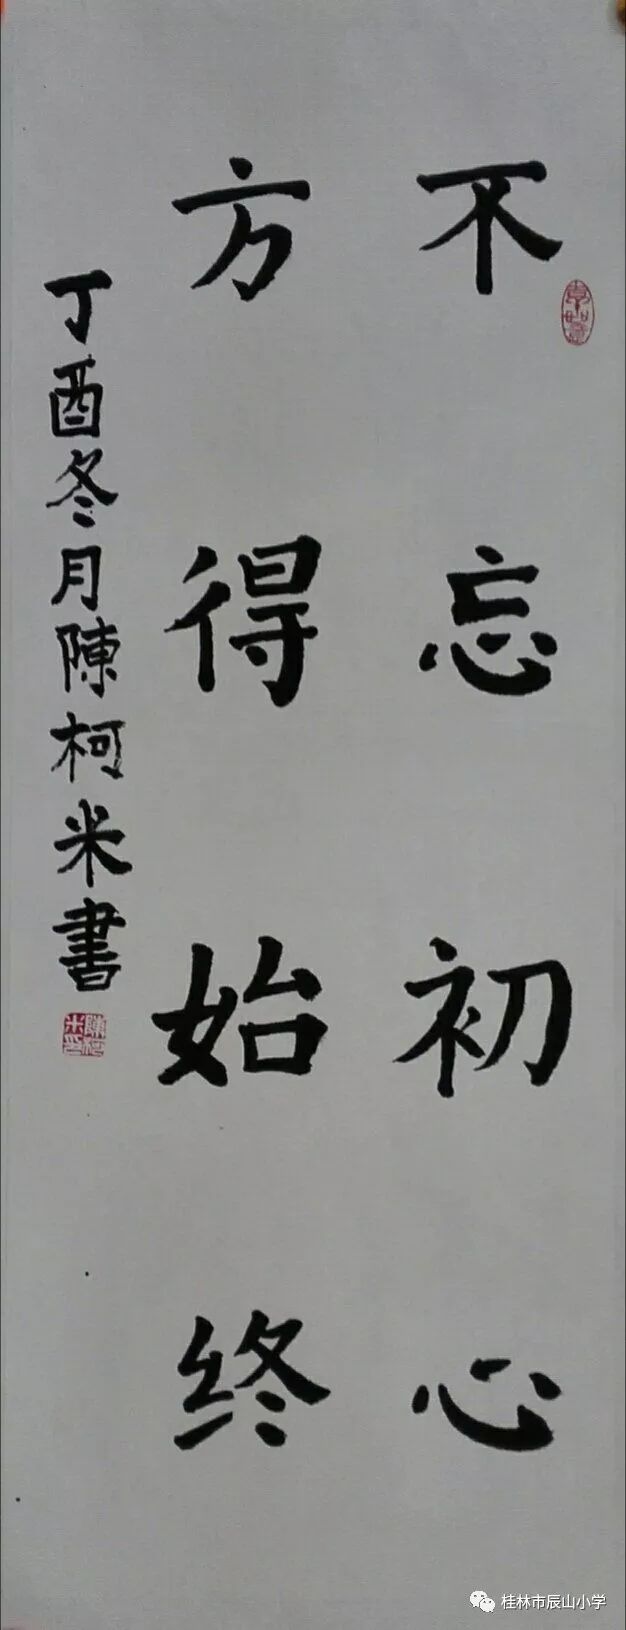 不忘初心
方得始终
丁酉冬月陳柯米書
陳柯米印
桂林市辰山小学